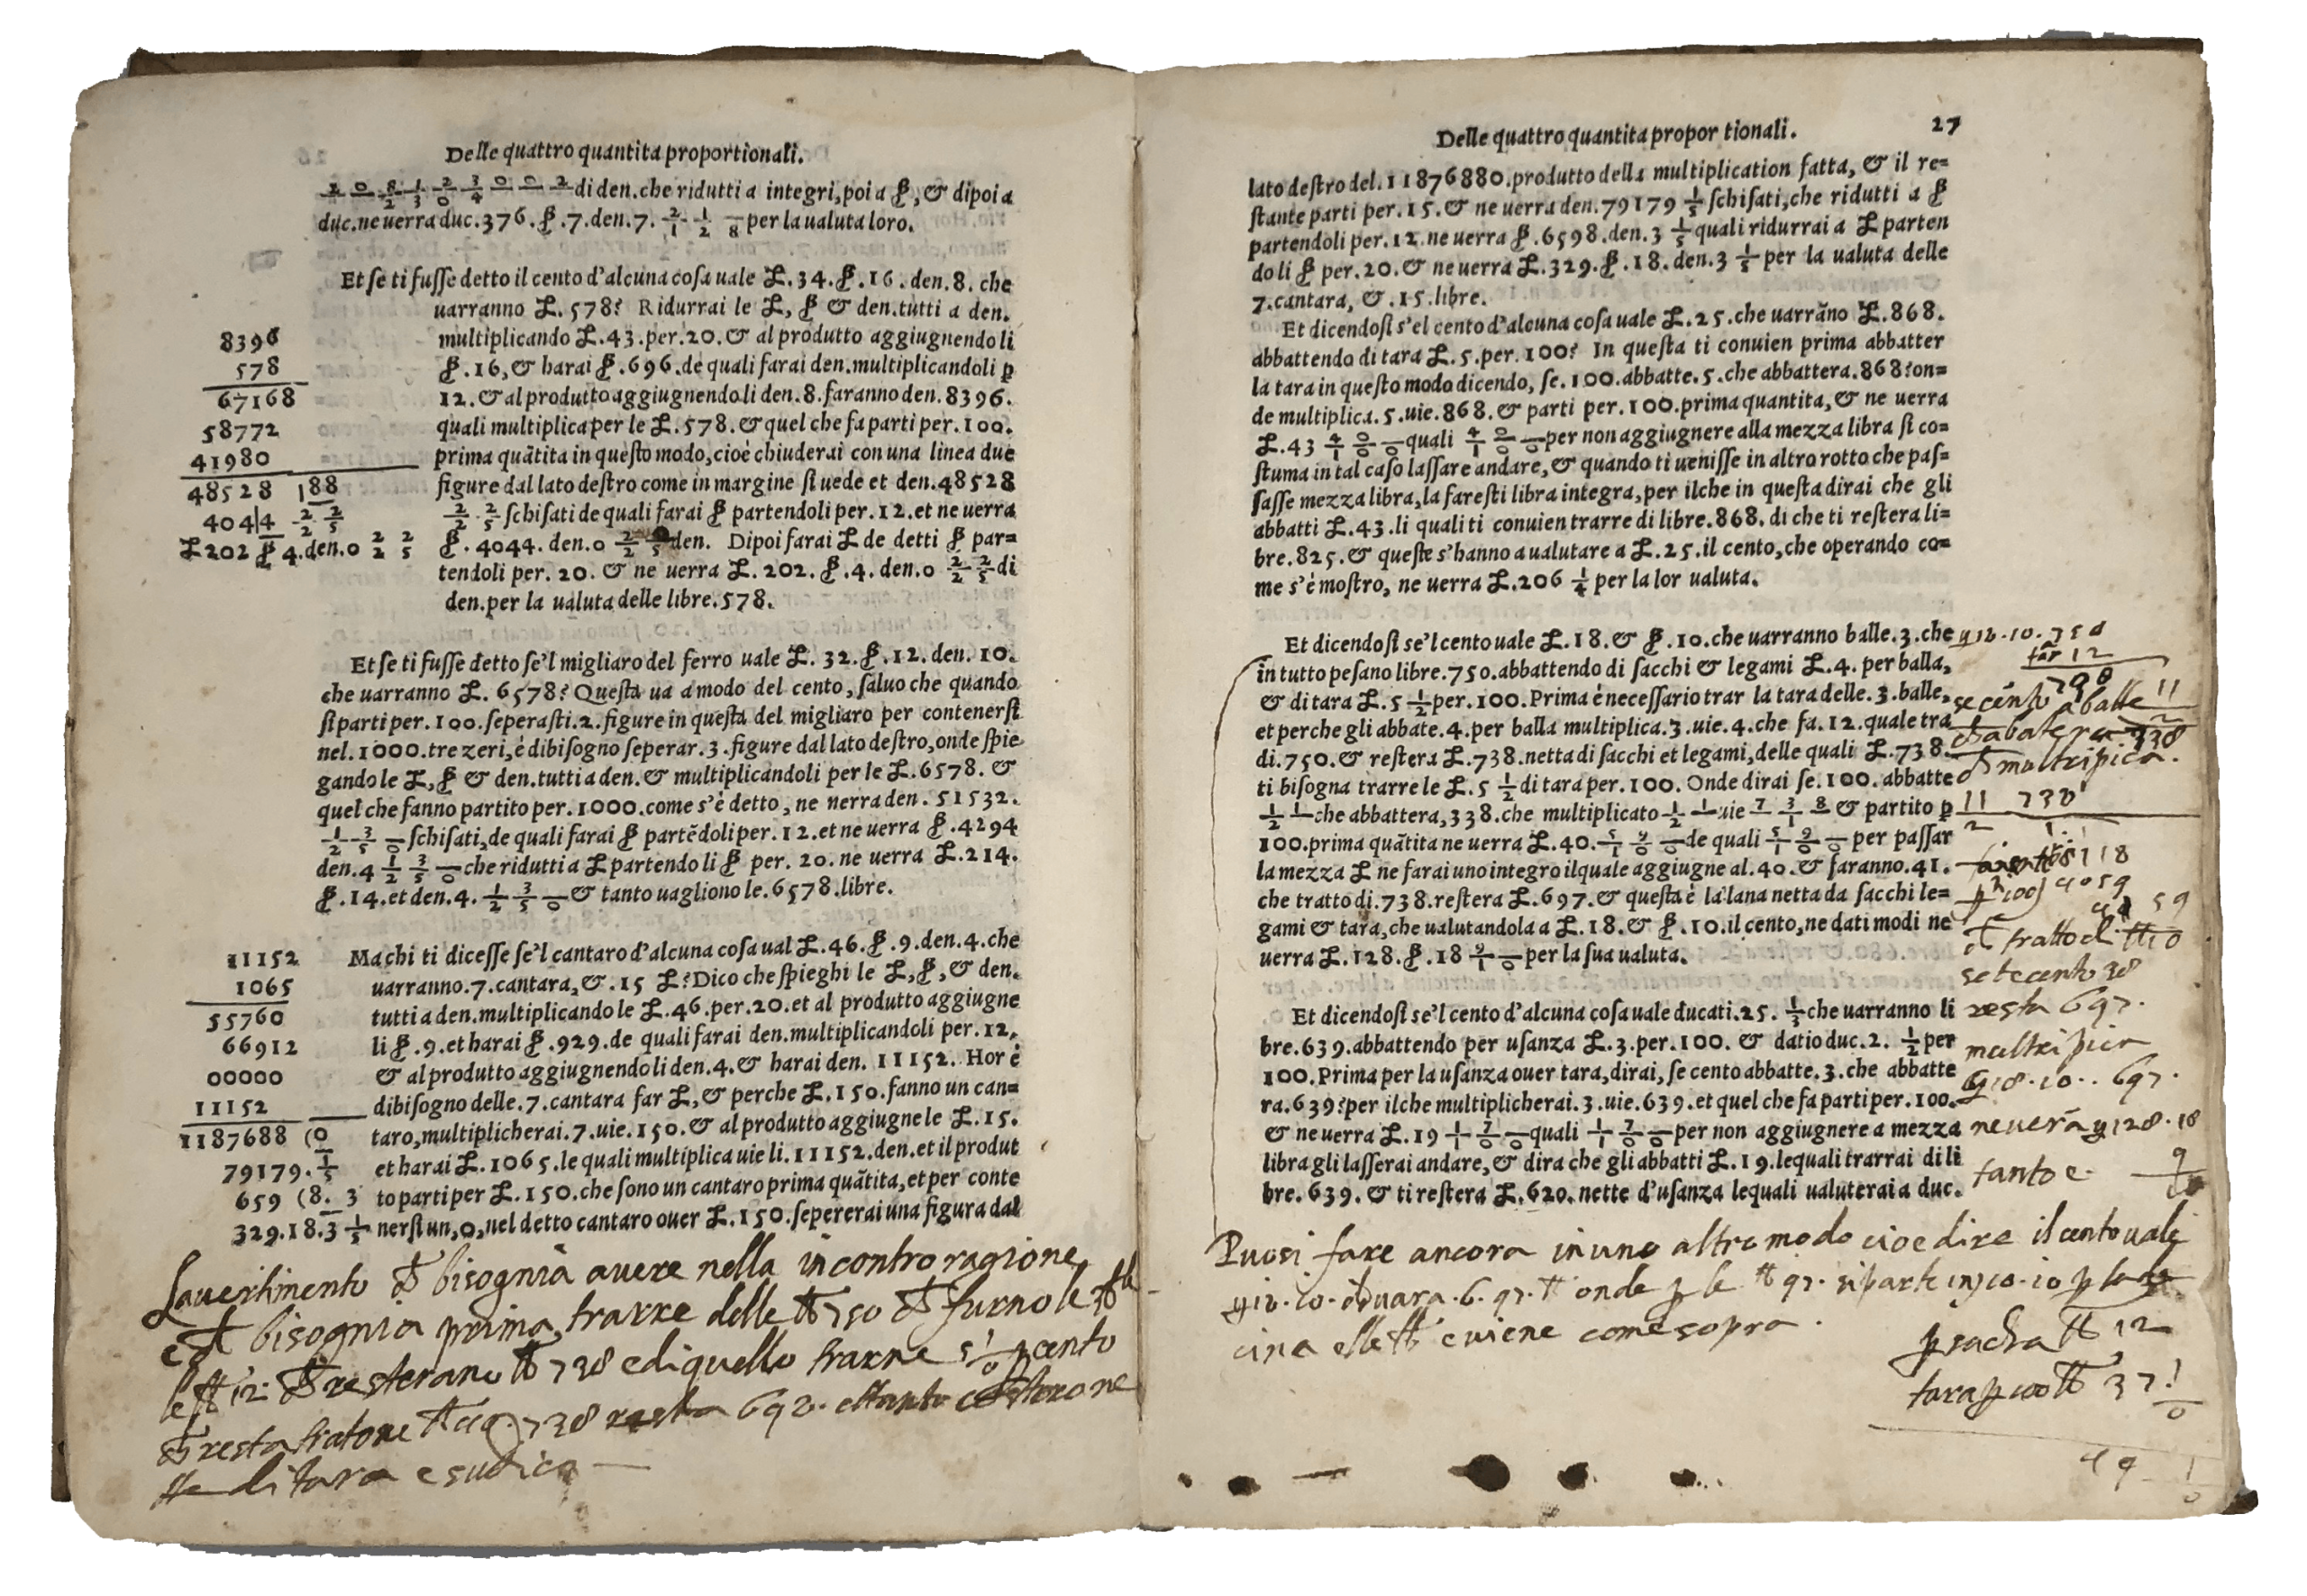 Delle quattro quantita proportionali.
di den. che ridutti a integri, poi a ₷, & dipoi a
duc. ne uerra duc. 376. ₷. 7. den. 7. 2/1 1/2 —/8 per la ualuta loro.
Et se ti fusse detto il cento d'alcuna cosa uale £. 34. ₷. 16. den. 8. che
uarranno £. 578? Ridurrai le £, ₷ & den. tutti a den.
multiplicando £. 43. per. 20. & al produtto aggiugnendoli
₷. 16, & harai ₷. 696. de quali farai den. multiplicandoli p
12. & al produtto aggiugnendoli den. 8. faranno den. 8396.
quali multiplica per le £. 578. & quel che fa parti per. 100.
prima quãtita in questo modo, cioè chiuderai con una linea due
figure dal lato destro come in margine si uede et den. 48528
2/2 2/5 schisati de quali farai ₷ partendoli per. 12. et ne uerra
₷. 4044. den. 0 2/2 2/5 den. Dipoi farai £ de detti ₷ par=
tendoli per. 20. & ne uerra £. 202. ₷. 4. den. 0 2/2 2/5 di
den. per la ualuta delle libre. 578.
8396
578
67168
58772
41980
48528 |88
404|4 2/2 2/5
£ 202 ₷ 4. den. 0 2/2 2/5
Et se ti fusse detto se'l migliaro del ferro uale £. 32. ₷. 12. den. 10.
che uarranno £. 6578? Questa ua a modo del cento, saluo che quando
si parti per. 100. seperasti. 2. figure in questa del migliaro per contenersi
nel. 1000. tre zeri, è dibisogno seperar. 3. figure dal lato destro, onde spie
gando le £, ₷ & den. tutti a den. & multiplicandoli per le £. 6578. &
quel che fanno partito per. 1000. come s'è detto, ne nerra den. 51532.
1/2 3/5 —/0 schisati, de quali farai ₷ partẽdoli per. 12. et ne uerra ₷. 4294
den. 4 1/2 3/5 —/0 che ridutti a £ partendo li ₷ per. 20. ne uerra £. 214.
₷. 14. et den. 4. 1/2 3/5 —/0 & tanto uagliono le. 6578. libre.
Ma chi ti dicesse se'l cantaro d'alcuna cosa ual £. 46. ₷. 9. den. 4. che
uarranno. 7. cantara, &. 15 £? Dico che spieghi le £, ₷, & den.
tutti a den. multiplicando le £. 46. per. 20. et al produtto aggiugne
li ₷. 9. et harai ₷. 929. de quali farai den. multiplicandoli per. 12,
& al produtto aggiugnendoli den. 4. & harai den. 11152. Hor è
dibisogno delle. 7. cantara far £, & perche £. 150. fanno un can=
taro, multiplicherai. 7. uie. 150. & al produtto aggiugne le £. 15.
et harai £. 1065. le quali multiplica uie li. 11152. den. et il produt
to parti per £. 150. che sono un cantaro prima quãtita, et per conte
nersi un, 0, nel detto cantaro ouer £. 150. sepererai una figura dal
11152
1065
55760
66912
00000
11152
1187688 (0
79179. 1/5
659 (8. 3
329. 18. 3 1/5
Lauertimento bisognia auere nella incontro ragione
bisognia prima trarre delle ℔ 750
le ℔ 12 resterano ℔ 738 e di quello trarne 5 1/0 p cento
resta
di tara
Delle quattro quantita propor tionali. 27
lato destro del. 11876880. produtto della multiplication fatta, & il re=
stante parti per. 15. & ne uerra den. 79179 1/5 schisati, che ridutti a ₷
partendoli per. 12. ne uerra ₷. 6598. den. 3 1/5 quali ridurrai a £ parten
do li ₷ per. 20. & ne uerra £. 329. ₷. 18. den. 3 1/5 per la ualuta delle
7. cantara, &. 15. libre.
Et dicendosi s'el cento d'alcuna cosa uale £. 25. che uarrãno £. 868.
abbattendo di tara £. 5. per. 100? In questa ti conuien prima abbatter
la tara in questo modo dicendo, se. 100. abbatte. 5. che abbattera. 868? on=
de multiplica. 5. uie. 868. & parti per. 100. prima quantita, & ne uerra
£. 43 4/1 0/0 —/0 quali 4/1 0/0 —/0 per non aggiugnere alla mezza libra si co=
stuma in tal caso lassare andare, & quando ti uenisse in altro rotto che pas=
sasse mezza libra, la faresti libra integra, per ilche in questa dirai che gli
abbatti £. 43. li quali ti conuien trarre di libre. 868. di che ti restera li=
bre. 825. & queste s'hanno a ualutare a £. 25. il cento, che operando co=
me s'è mostro, ne uerra £. 206 1/4 per la lor ualuta.
Et dicendosi se'l cento uale £. 18. & ₷. 10. che uarranno balle. 3. che
in tutto pesano libre. 750. abbattendo di sacchi & legami £. 4. per balla,
& di tara £. 5 1/2 per. 100. Prima è necessario trar la tara delle. 3. balle,
et perche gli abbate. 4. per balla multiplica. 3. uie. 4. che fa. 12. quale tra
di. 750. & restera £. 738. netta di sacchi et legami, delle quali £. 738.
ti bisogna trarre le £. 5 1/2 di tara per. 100. Onde dirai se. 100. abbatte
1/2 1/— che abbattera, 338. che multiplicato 1/2 1/— uie 7/— 3/1 8/— & partito p
100. prima quãtita ne uerra £. 40. 5/1 9/0 —/0 de quali 5/1 9/0 —/0 per passar
la mezza £ ne farai uno integro ilquale aggiugne al. 40. & faranno. 41.
che tratto di. 738. restera £. 697. & questa è la lana netta da sacchi le=
gami & tara, che ualutandola a £. 18. & ₷. 10. il cento, ne dati modi ne
uerra £. 128. ₷. 18 9/1 —/0 per la sua ualuta.
Et dicendosi se'l cento d'alcuna cosa uale ducati. 25. 1/3 che uarranno li
bre. 639. abbattendo per usanza £. 3. per. 100. & datio duc. 2. 1/2 per
100. Prima per la usanza ouer tara, dirai, se cento abbatte. 3. che abbatte
ra. 639? per ilche multiplicherai. 3. uie. 639. et quel che fa parti per. 100.
& ne uerra £. 19 1/1 7/0 —/0 quali 1/1 7/0 —/0 per non aggiugnere a mezza
libra gli lasserai andare, & dira che gli abbatti £. 19. lequali trarrai di li
bre. 639. & ti restera £. 620. nette d'usanza lequali ualuterai a duc.
18. 10. 750
12
11
738
11 738
2
8118
4059
59
tratto di
setecento 38
resta 697.
multripica
18. 10. 697.
ne uerã 128. 18
tanto e 9
Puosi fare ancora in uno altro modo cioe dire il cento uale
18. 10. uara 6. 97. ℔ onde p le ℔ 97.
e uiene come sopra.
p sacha ℔ 12
tara p 100 ℔ 37 1/0
49 1/0